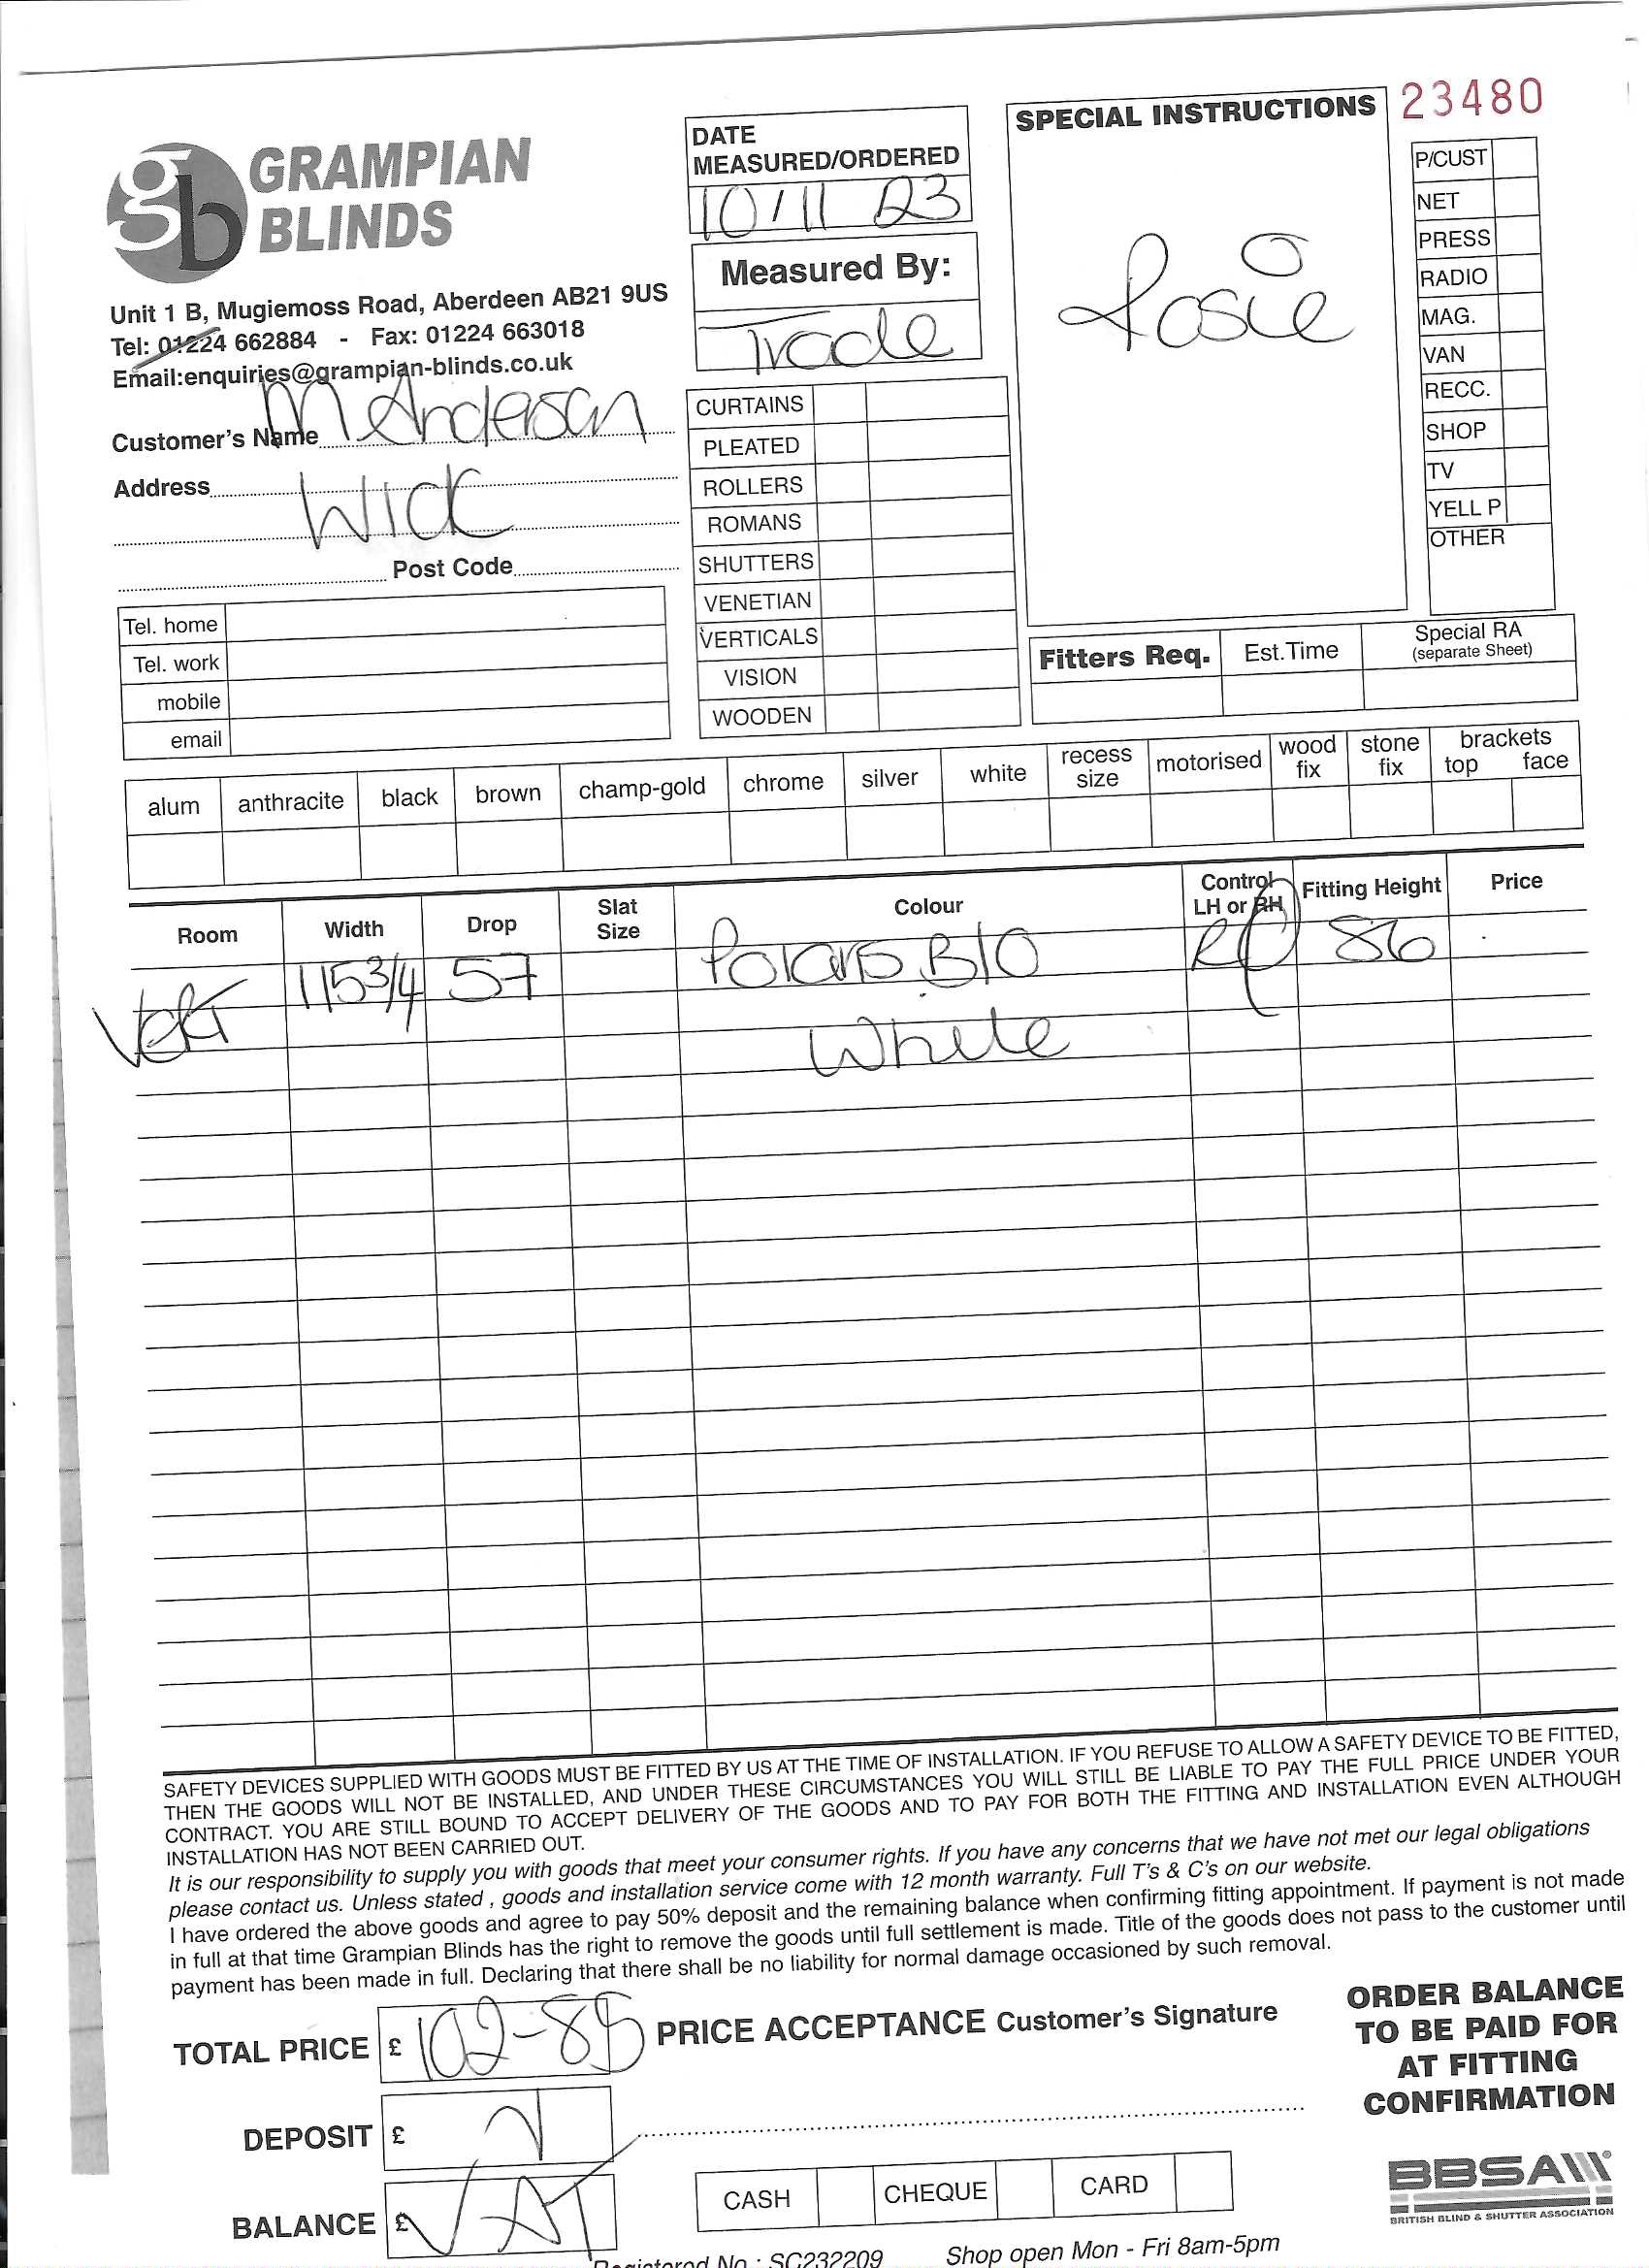 23480
GRAMPIAN
BLINDS
Unit 1 B, Mugiemoss Road, Aberdeen AB21 9US
Tel: 01224 662884 - Fax: 01224 663018
Email:enquiries@grampian-blinds.co.uk
Customer's Name M Anderson
Address Wick
Post Code
Tel. home
Tel. work
mobile
email
DATE
MEASURED/ORDERED
10/11 23
Measured By:
Trade
CURTAINS
PLEATED
ROLLERS
ROMANS
SHUTTERS
VENETIAN
VERTICALS
VISION
WOODEN
SPECIAL INSTRUCTIONS
Rosie
P/CUST
NET
PRESS
RADIO
MAG.
VAN
RECC.
SHOP
TV
YELL P
OTHER
Fitters Req. Est.Time Special RA
(separate Sheet)
alum anthracite black brown champ-gold chrome silver white recess size motorised wood fix stone fix brackets top face
Room Width Drop Slat Size Colour Control LH or RH Fitting Height Price
Vert 115 3/4 57 Polaris B/O 86
White
SAFETY DEVICES SUPPLIED WITH GOODS MUST BE FITTED BY US AT THE TIME OF INSTALLATION. IF YOU REFUSE TO ALLOW A SAFETY DEVICE TO BE FITTED,
THEN THE GOODS WILL NOT BE INSTALLED, AND UNDER THESE CIRCUMSTANCES YOU WILL STILL BE LIABLE TO PAY THE FULL PRICE UNDER YOUR
CONTRACT. YOU ARE STILL BOUND TO ACCEPT DELIVERY OF THE GOODS AND TO PAY FOR BOTH THE FITTING AND INSTALLATION EVEN ALTHOUGH
INSTALLATION HAS NOT BEEN CARRIED OUT.
It is our responsibility to supply you with goods that meet your consumer rights. If you have any concerns that we have not met our legal obligations
please contact us. Unless stated , goods and installation service come with 12 month warranty. Full T's & C's on our website.
I have ordered the above goods and agree to pay 50% deposit and the remaining balance when confirming fitting appointment. If payment is not made
in full at that time Grampian Blinds has the right to remove the goods until full settlement is made. Title of the goods does not pass to the customer until
payment has been made in full. Declaring that there shall be no liability for normal damage occasioned by such removal.
TOTAL PRICE £ 102-85
PRICE ACCEPTANCE Customer's Signature
DEPOSIT £
BALANCE £ VAT
CASH CHEQUE CARD
ORDER BALANCE
TO BE PAID FOR
AT FITTING
CONFIRMATION
BBSA
BRITISH BLIND & SHUTTER ASSOCIATION
Registered No.: SC232209 Shop open Mon - Fri 8am-5pm